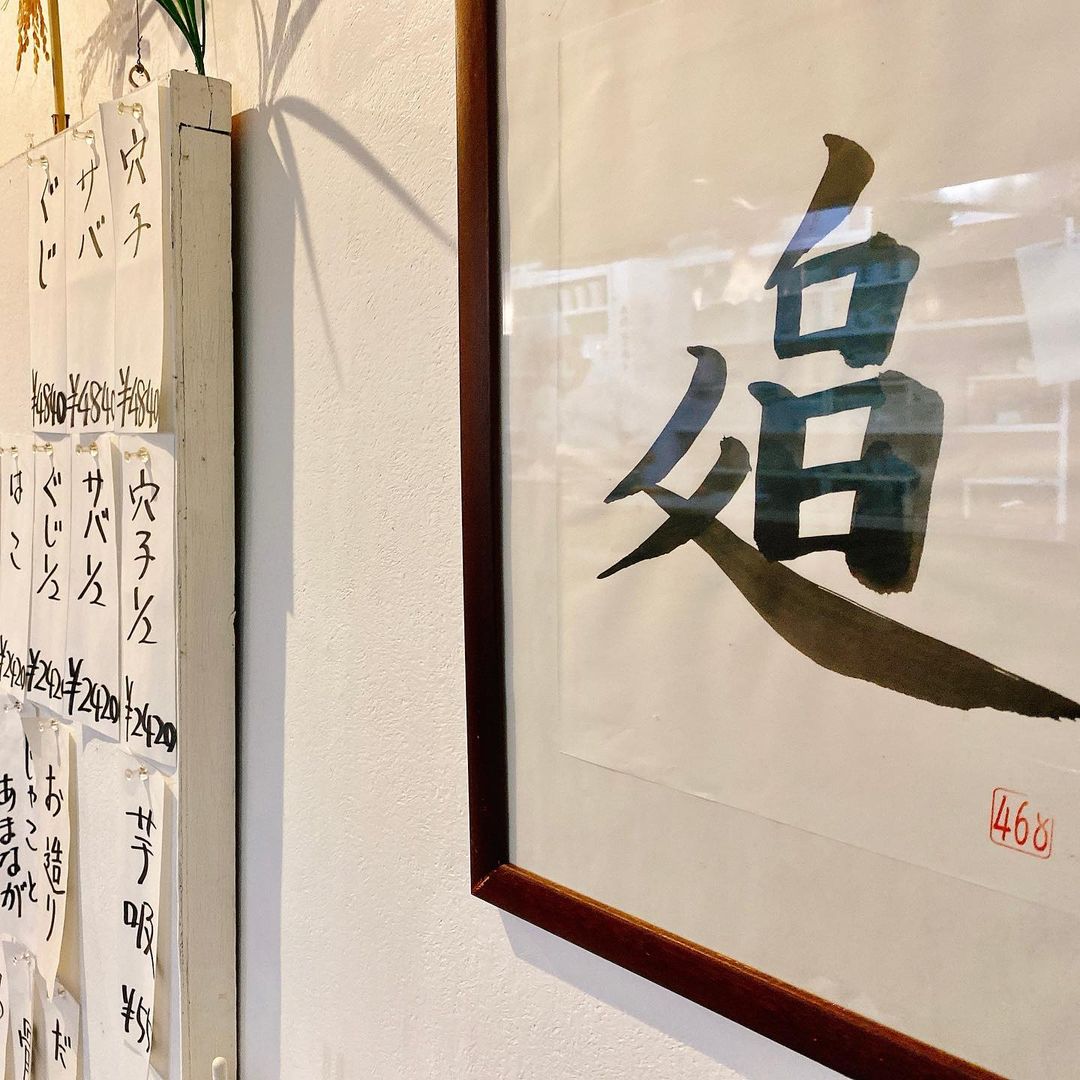 468
穴子
¥4840
サバ
¥484
ぐじ
¥4840
穴子1/2
¥2420
サバ1/2
¥2420
ぐじ1/2
¥242
はこ
¥2420
芋吸
¥55
お造り
じゃこと
あまなが
だ